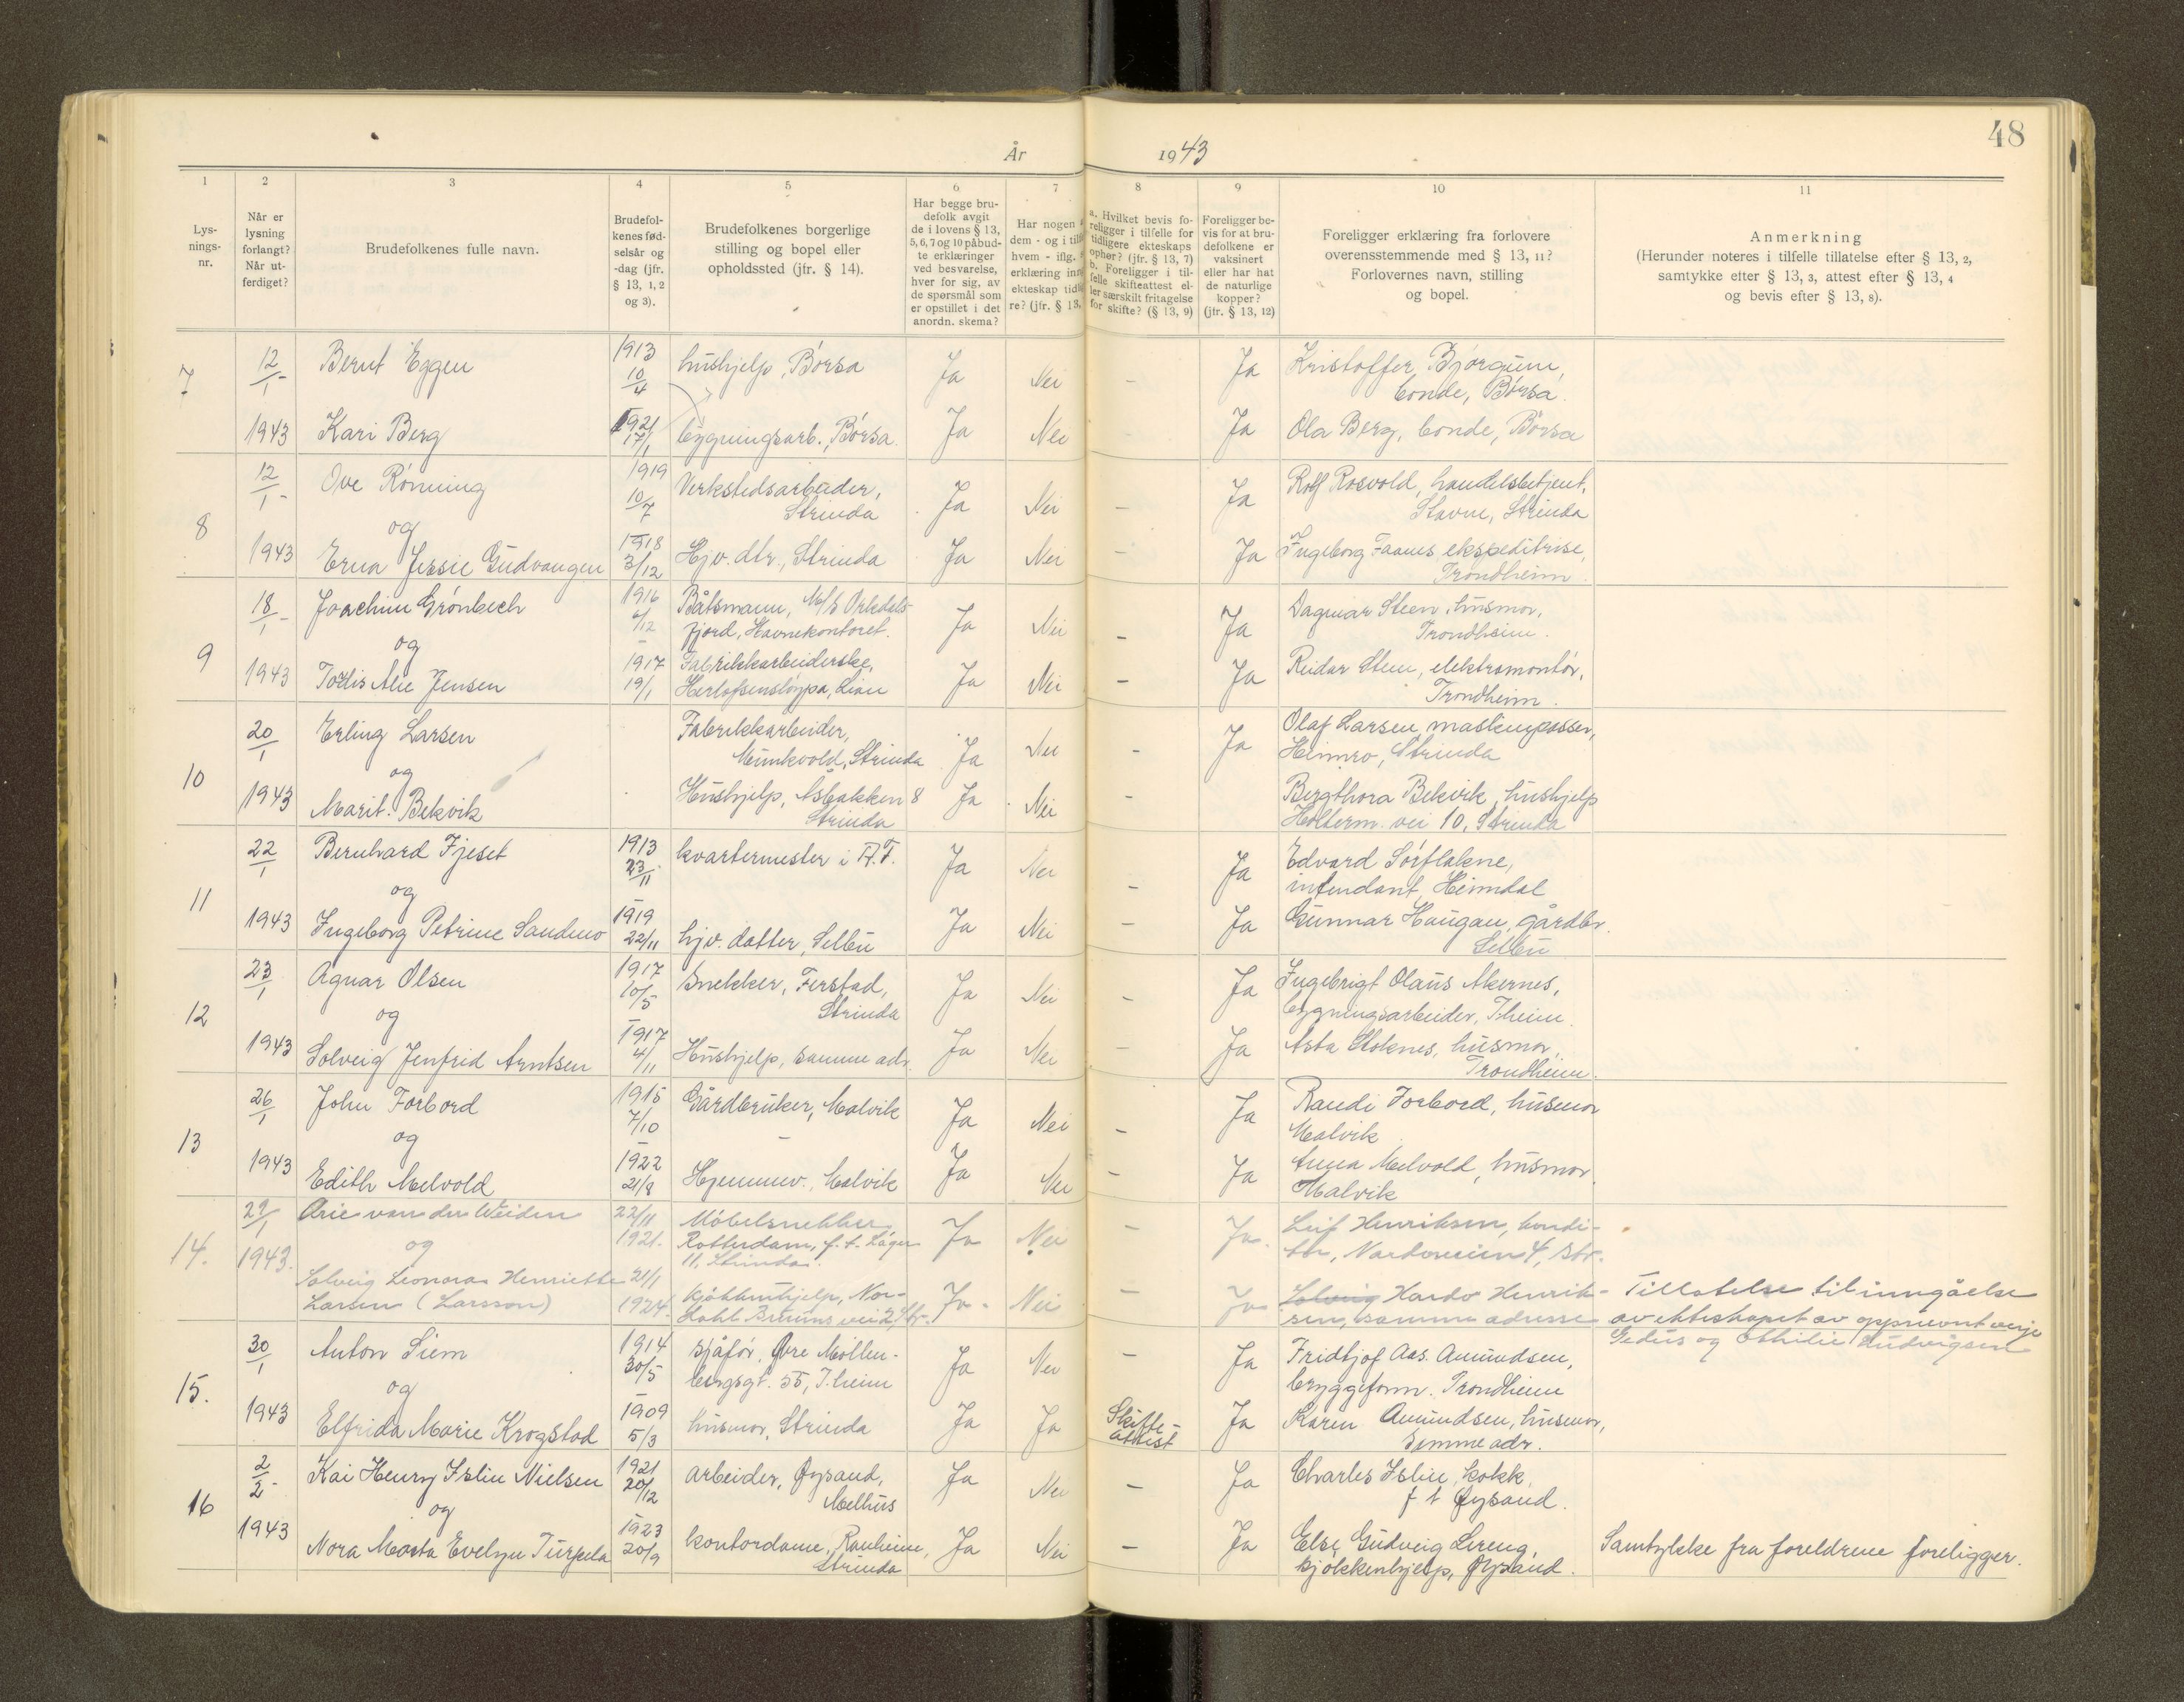 48
År 1943
1 2 3 4 5 6 7 8 9 10 11
Lys-
nings-
nr.
Når er
lysning
forlangt?
Når ut-
ferdiget?
Brudefolkenes fulle navn.
Brudefol-
kenes fød-
selsår og
-dag (jfr.
§ 13, 1, 2
og 3).
Brudefolkenes borgerlige
stilling og bopel eller
opholdssted (jfr. § 14).
Har begge bru-
defolk avgit
de i lovens § 13,
5, 6, 7 og 10 påbud-
te erklæringer
ved besvarelse,
hver for sig, av
de spørsmål som
er opstillet i det
anordn. skema?
Har nogen
dem - og i
hvem - iflg.
erklæring
ekteskap
re? (jfr. § 13,
a. Hvilket bevis fo-
religger i tilfelle for
tidligere ekteskaps
ophør? (jfr. § 13, 7)
b. Foreligger i til-
felle skifteattest el-
ler særskilt fritagelse
for skifte? (§ 13, 9)
Foreligger be-
vis for at bru-
defolkene er
vaksinert
eller har hat
de naturlige
kopper?
(jfr. § 13, 12)
Foreligger erklæring fra forlovere
overensstemmende med § 13, 11?
Forlovernes navn, stilling
og bopel.
Anmerkning
(Herunder noteres i tilfelle tillatelse efter § 13, 2,
samtykke efter § 13, 3, attest efter § 13, 4
og bevis efter § 13, 8).
7 12/1 - Bernt Eggen 1913 10/4 hushjelp, Børsa Ja Nei - Ja Kristoffer Bjørgum,
bonde, Børsa.
1943 Kari Berg 1921 17/1 bygningsarb., Børsa. Ja Nei - Ja Ola Berg, bonde, Børsa
12/1 - Ove Rønning 1919 10/7 Verkstedsarbeider,
Strinda Ja Nei - Ja Rolf Rosvold, handelsbetjent,
Stavne, Strinda
8 og
1943 Erna Jessie Gudvangen 1918 3/12 Hjv. dtr., Strinda Ja Nei - Ja Ingeborg Faanes ekspeditrise,
Trondheim
18/1 - Joachim Grønbech 1916 6/12 Båtsmann, M/S Orkdals-
fjord, Havnekontoret. Ja Nei - Ja Dagmar Steen, husmor,
Trondheim.
9 og
1943 Tordis Alie Jensen 1917 19/1 Fabrikkarbeiderske,
Herlofsensløypa, Lian Ja Nei - Ja Reidar Steen, elektromontør,
Trondheim.
20/1 Erling Larsen Fabrikkarbeider,
Munkvold, Strinda Ja Nei - Ja Olaf Larsen, maskinpasser,
Heimro, Strinda
10 og
1943 Marit Bekvik Hushjelp, Åsbakken 8
Strinda Ja Nei - Bergthora Bekvik, hushjelp
Holterm. vei 10, Strinda
22/1 Bernhard Fjeset 1913 23/11 kvartermester i A.T. Ja Nei - Ja Edvard Sørflakne,
intendant, Heimdal
11 og
1943 Ingeborg Petrine Sandmo 1919 22/11 hjv. datter, Selbu Ja Nei - Ja Gunnar Haugan, gårdbr.
Selbu
23/1 Agnar Olsen 1917 10/5 Snekker, Ferstad,
Strinda Ja Nei - Ja Ingebrigt Olaus Akernes,
bygningsarbeider, T.heim.
12 og
1943 Solveig Jenfrid Arntsen 1917 4/11 Hushjelp, samme adr. Ja Nei - Ja Asta Stoknes, husmor,
Trondheim.
26/1 John Forbord 1915 7/10 Gårdbruker, Malvik Ja Nei - Ja Randi Forbord, husmor
Malvik
13 og
1943 Edith Melvold 1922 21/8 Hjemmev., Malvik Ja Nei - Ja Anna Melvold, husmor
Malvik
29/1 Arie van der Weiden 22/11 1921. Møbelsnekker
Rotterdam, f.t. Lager
11, Strinda. Ja Nei - Ja. Leif Henriksen, kondi-
tor, Nardoveien 4, Str.
14. 1943. og
Solveig Leonora Henriette
Larsen (Larsson) 21/1 1924. kjøkkenhjelp, Nor-
dahl Bruuns vei 2, Str. Ja. Nei - Ja Solveig Hardo Henrik-
sen, samme adresse
Tillatelse til inngåelse
av ekteskapet av oppnevnt verje
Gedus og Othilie Ludvigsen
30/1 Anton Siem 1914 30/5 sjåfør, Øvre Møllen-
bergsgt. 55, T.heim Ja Nei - Ja Fridtjof Aas. Amundsen,
bryggeform. Trondheim
15. og
1943 Elfrida Marie Krogstad 1909 5/3 husmor, Strinda Ja Ja Skifte-
attest Ja Karen Amundsen, husmor,
Samme adr.
2/2 - Kai Henry Islin Nielsen 1921 20/12 arbeider, Øysand,
Melhus Ja Nei - Ja Charles Islin, kokk,
f t Øysand.
16 og
1943 Nora Marta Evelyn Turpela 1923 20/9 kontordame, Ranheim,
Strinda Ja Nei - Ja Else Gudveig Lereng,
kjøkkenhjelp, Øysand.
Samtykke fra foreldrene foreligger.